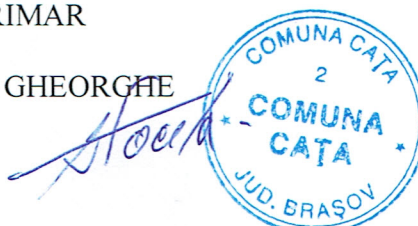 RIMAR
GHEORGHE
COMUNA CAȚA
2
COMUNA
CAȚA
JUD. BRAȘOV